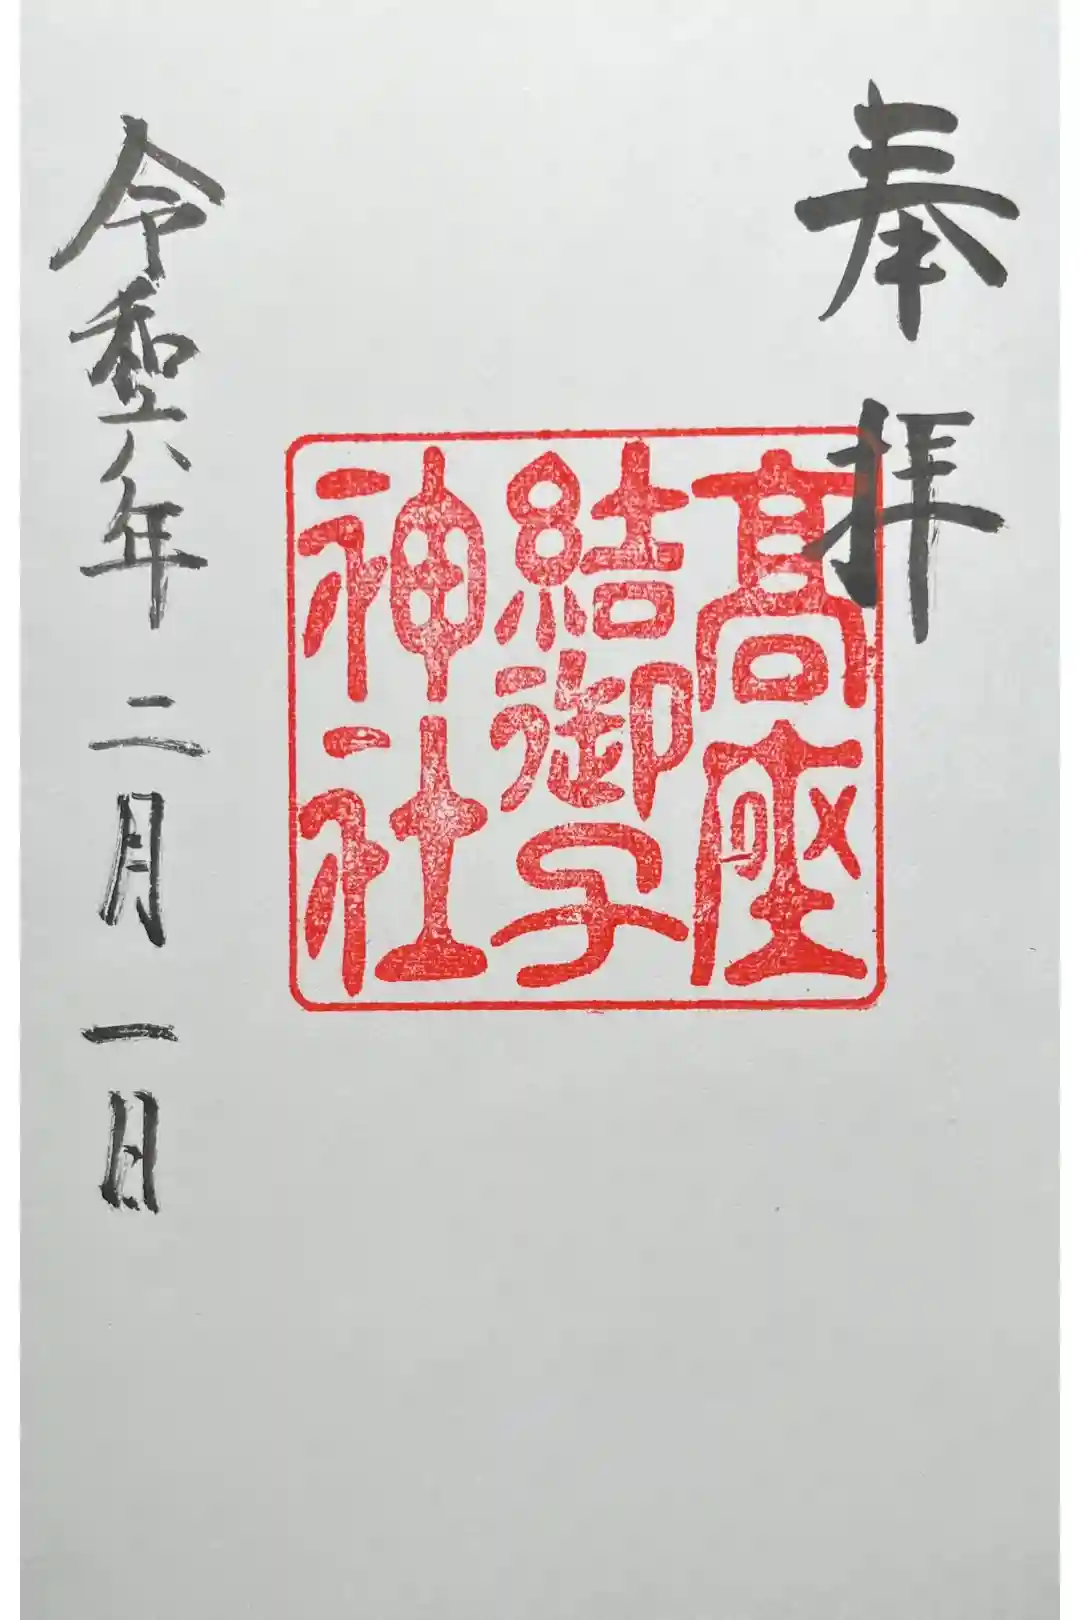 奉拝
髙座
結御子
神社
令和六年二月一日